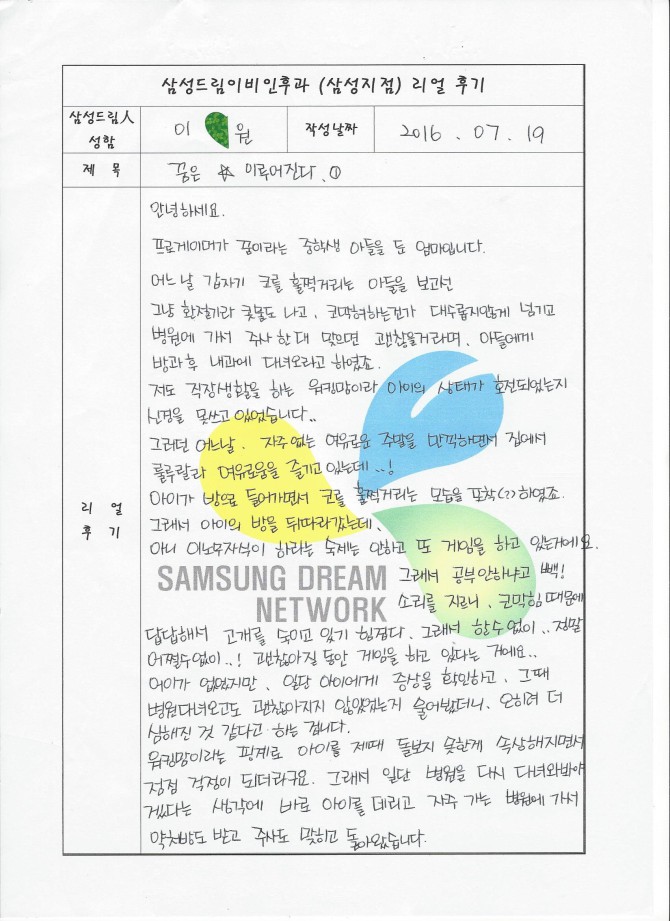 삼성드림이비인후과 (삼성지점) 리얼 후기
삼성드림人
성함
이 원
작성날짜
2016 . 07. 19
제 목
꿈은 ☆ 이루어진다. ①
안녕하세요.
프로게이머가 꿈이라는 중학생 아들을 둔 엄마입니다.
어느날 갑자기 코를 훌쩍거리는 아들을 보고선
그냥 환절기라 콧물도 나고, 코막혀하는건가 대수롭지않게 넘기고
병원에 가서 주사 한대 맞으면 괜찮을거라며, 아들에게
방과후 내과에 다녀오라고 하였죠.
저도 직장생활을 하는 워킹맘이라 아이의 상태가 호전되었는지
신경을 못쓰고 있었습니다..
그러던 어느날. 자주없는 여유로운 주말을 만끽하면서 집에서
룰루랄라 여유로움을 즐기고 있는데..!
아이가 방으로 들어가면서 코를 훌쩍거리는 모습을 포착(?)하였죠.
그래서 아이의 방을 뒤따라갔는데,
아니 이노무자식이 하라는 숙제는 안하고 또 게임을 하고 있는거에요.
그래서 공부안하냐고 빽!
소리를 지르니, 코막힘때문에
답답해서 고개를 숙이고 있기 힘겹다, 그래서 할수없이.. 정말
어쩔수없이..! 괜찮아질 동안 게임을 하고 있다는 거에요..
어이가 없었지만, 일단 아이에게 증상을 확인하고, 그때
병원다녀오고도 괜찮아지지 않았었는지 물어봤더니, 오히려 더
심해진 것 같다고 하는 겁니다.
워킹맘이라는 핑계로 아이를 제때 돌보지 못한게 속상해지면서
점점 걱정이 되더라구요. 그래서 일단 병원을 다시 다녀와봐야
겠다는 생각에 바로 아이를 데리고 자주 가는 병원에 가서
약처방도 받고 주사도 맞히고 돌아왔습니다.
리 얼
후 기
SAMSUNG DREAM
NETWORK